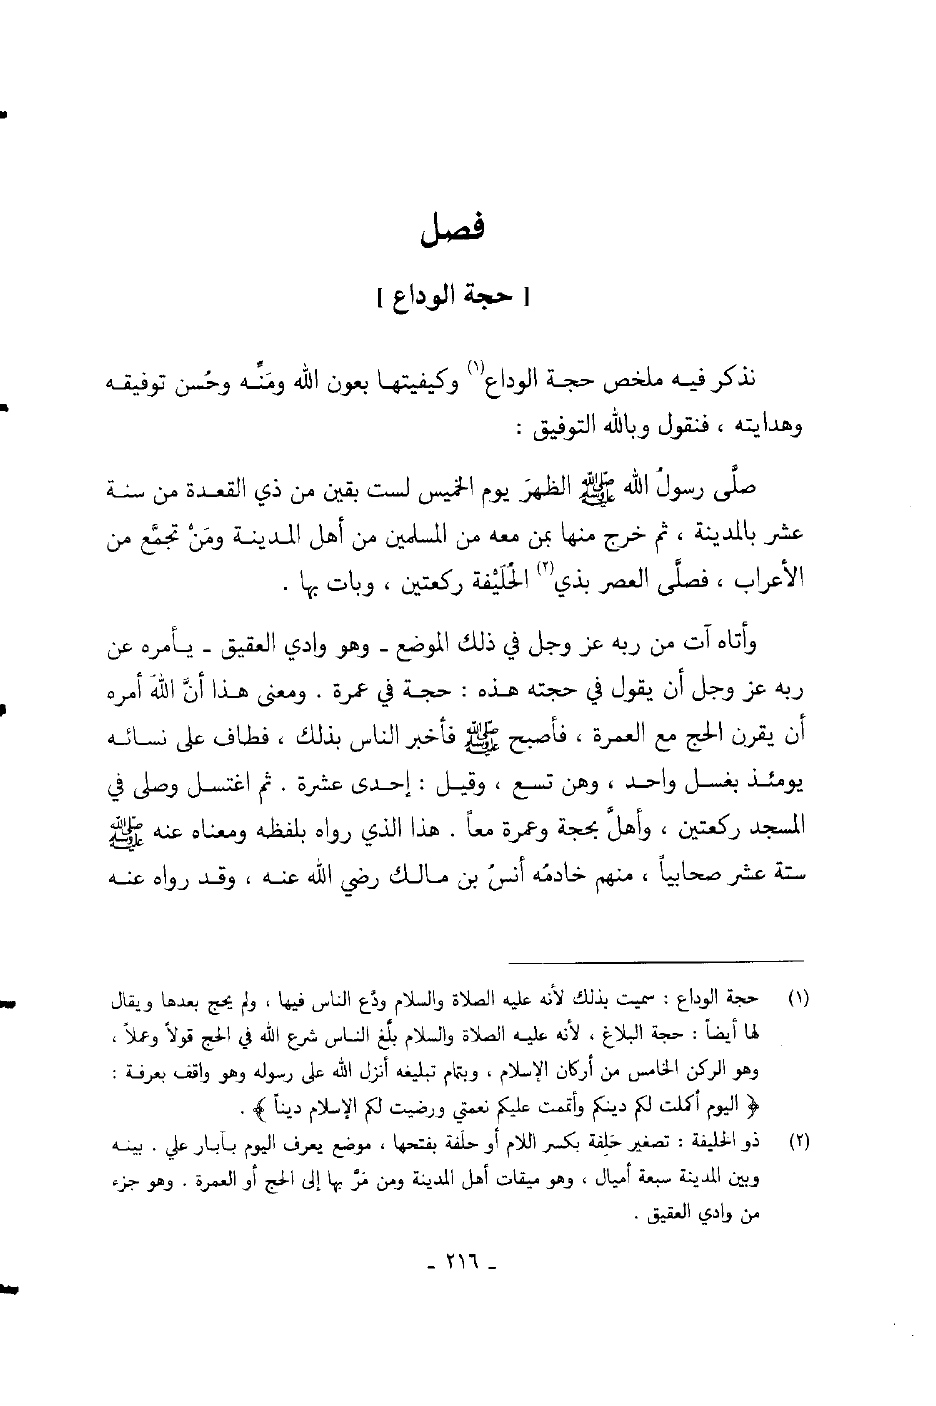 فصل
[ حجة الوداع ]
نذكر فيه ملخص حجة الوداع(١) وكيفيتها بعون الله ومَنِّه وحُسن توفيقه
وهدايته ، فنقول وبالله التوفيق :
صلَّى رسولُ الله ﷺ الظهرَ يوم الخميس لست بقين من ذي القعدة من سنة
عشر بالمدينة ، ثم خرج منها بمن معه من المسلمين من أهل المدينة ومَنْ تجمَّع من
الأعراب ، فصلَّى العصر بذي(٢) الحُلَيْفة ركعتين ، وبات بها .
وأتاه آت من ربه عز وجل في ذلك الموضع ـ وهو وادي العقيق ـ يأمره عن
ربه عز وجل أن يقول في حجته هذه : حجة في عمرة . ومعنى هذا أنَّ اللهَ أمره
أن يقرن الحج مع العمرة ، فأصبح ﷺ فأخبر الناس بذلك ، فطاف على نسائه
يومئذ بغسل واحد ، وهن تسع ، وقيل : إحدى عشرة . ثم اغتسل وصلى في
المسجد ركعتين ، وأهلَّ بحجة وعمرة معاً . هذا الذي رواه بلفظه ومعناه عنه ﷺ
ستة عشر صحابياً ، منهم خادمُه أنسُ بن مالك رضي الله عنه ، وقد رواه عنه
(١) حجة الوداع : سميت بذلك لأنه عليه الصلاة والسلام ودَّع الناس فيها ، ولم يحج بعدها ويقال
لها أيضاً : حجة البلاغ ، لأنه عليه الصلاة والسلام بلَّغ الناس شرع الله في الحج قولاً وعملاً ،
وهو الركن الخامس من أركان الإسلام ، وبتمام تبليغه أنزل الله على رسوله وهو واقف بعرفة :
﴿ اليوم أكملت لكم دينكم وأتممت عليكم نعمتي ورضيت لكم الإسلام ديناً ﴾ .
(٢) ذو الحليفة : تصغير حَلِفة بكسر اللام أو حلَفة بفتحها ، موضع يعرف اليوم بآبار علي . بينه
وبين المدينة سبعة أميال ، وهو ميقات أهل المدينة ومن مَرَّ بها إلى الحج أو العمرة . وهو جزء
من وادي العقيق .
ـ ٢١٦ ـ